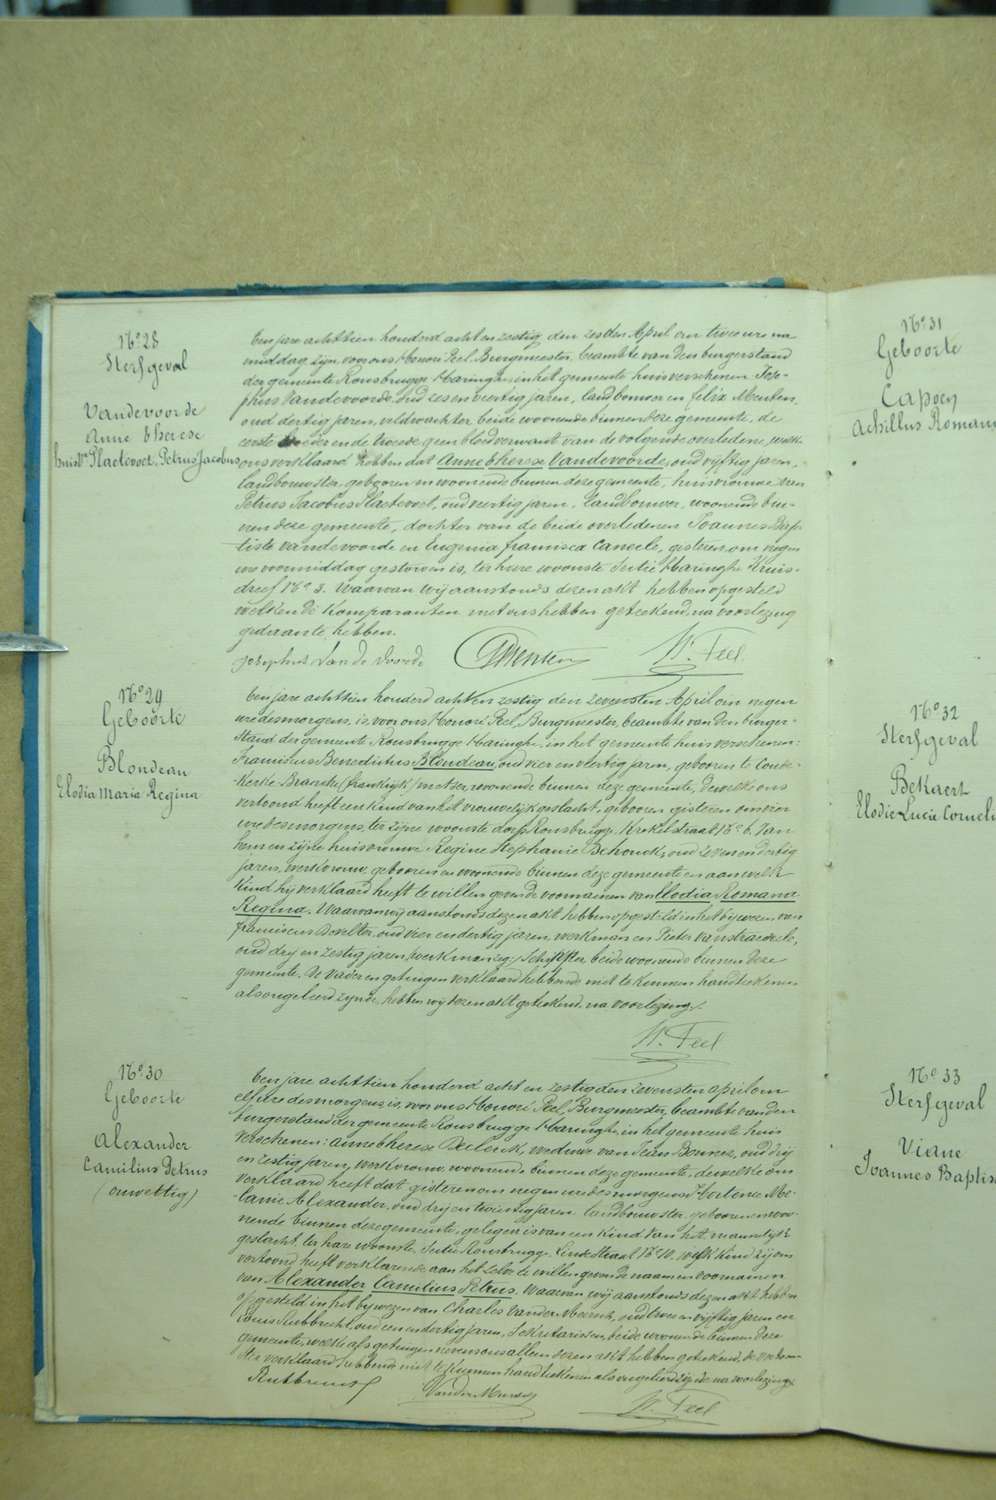 N° 28
Sterfgeval
Vandevoorde
Anne Therese
huisv. Plaetevoet, Petrus Jacobus
Een jare achttien honderd acht en zestig den zesden April om twee uren na
middag zijn voor ons Honoré Peel, Burgmeester, beambte van den burgerstand
der gemeente Rousbrugge Haringhe, in het gemeente huis verschenen Jose-
phus Vandevoorde, oud zes en veertig jaren, landbouwer en Felix Menten,
oud dertig jaren, veldwachter beide woonende binnen deze gemeente, de
eerste broeder en de tweede geen bloedverwant van de volgende overledene, welke
ons verklaard hebben dat Anne Therese Vandevoorde, oud vijftig jaren,
landbouwster, geboren en woonende binnen deze gemeente, huisvrouwe van
Petrus Jacobus Plaetevoet, oud veertig jaren, landbouwer, woonende bin-
nen deze gemeente, dochter van de beide overledenen Joannes Bap-
tiste Vandevoorde en Eugenia Francisca Caneele, gisteren om negen
ure voormiddag gestorven is, ter hare woonste Sectie Haringhe Kruis-
dreef N° 3. Waarvan wij aanstonds dezen akt hebben opgesteld
welken de komparanten met ons hebben geteekend, na voorlezing
gedaan te hebben.
Josephus Van de Voorde
FMenten
H. Peel
N° 29
Geboorte
Blondeau
Elodia Maria Regina
Een jare achttien honderd acht en zestig den zevensten April om negen
ure des morgens, is, voor ons Honoré Peel, Burgmeester, beambte van den burger-
stand der gemeente Rousbrugge Haringhe, in het gemeente huis verschenen:
Franciscus Benedictus Blondeau, oud vier en veertig jaren, geboren te Coude-
kerke Brancke (frankrijk) metser, woonende binnen deze gemeente, dewelke ons
vertoond heeft een kind van het vrouwelijk geslacht, geboren gisteren om vier
ure des morgens, ter zijne woonste dorp Rousbrugge, Krekelstraat N° 6, van
hem en zijne huisvrouwe Regine Stephanie Behouck, oud zeven en dertig
jaren, werkvrouw, geboren en woonende binnen deze gemeente en aan welk
kind hij verklaard heeft te willen geven de voornamen van Elodia Romana
Regina. Waarvan wij aanstonds dezen akt hebben opgesteld in het bijwezen van
Franciscus Desalter, oud vier en dertig jaren, werkman en Pieter Vanstraeseele,
oud drij en zestig jaren, werkman beide woonende binnen deze
gemeente. De vader en getuigen verklaard hebbende niet te kunnen handteekenen
als ongeleerd zijnde, hebben wij dezen akt geteekend, na voorlezing.
H. Peel
N° 30
Geboorte
Alexander
Camilius Petrus
(onwettig)
Een jare achttien honderd acht en zestig den zevensten april om
elf ure des morgens, is, voor ons Honoré Peel, Burgmeester, beambte van den
burgerstand der gemeente Rousbrugge Haringhe, in het gemeente huis
verschenen: Anne Therese Declerck, weduwe van Jean Bonnez, oud drij
en zestig jaren, werkvrouw, woonende binnen deze gemeente, dewelke ons
verklaard heeft dat gisteren om negen ure des morgens Hortense Me-
lanie Alexander, oud drij en twintig jaren landbouwster, geboren en woo-
nende binnen deze gemeente, gelegen is van een kind van het mannelijk
geslacht, ter hare woonste, Sectie Rousbrugge, Linde Straat N° 10, welk kind zij ons
vertoond heeft verklarende aan het zelve te willen geven de naam en voornamen
van Alexander Camilius Petrus. Waarvan wij aanstonds dezen akt hebben
opgesteld in het bijwezen van Charles Vander Meersch, oud twee en vijftig jaren en
Louis Rubbrecht, oud een en dertig jaren, Sekretarissen, beide woonende binnen deze
gemeente, welke als getuigen nevens ons alleen dezen akt hebben geteekend, de vertoon-
ster verklaard hebbende niet te kunnen handteekenen als ongeleerd zijnde na voorlezing
Rubbrecht
VanderMeersch
H. Peel
N° 31
Geboorte
Capoen
Achillus Roman
N° 32
Sterfgeval
Bekaert
Elodie Lucie Corneli
N° 33
Sterfgeval
Viane
Joannes Baptis